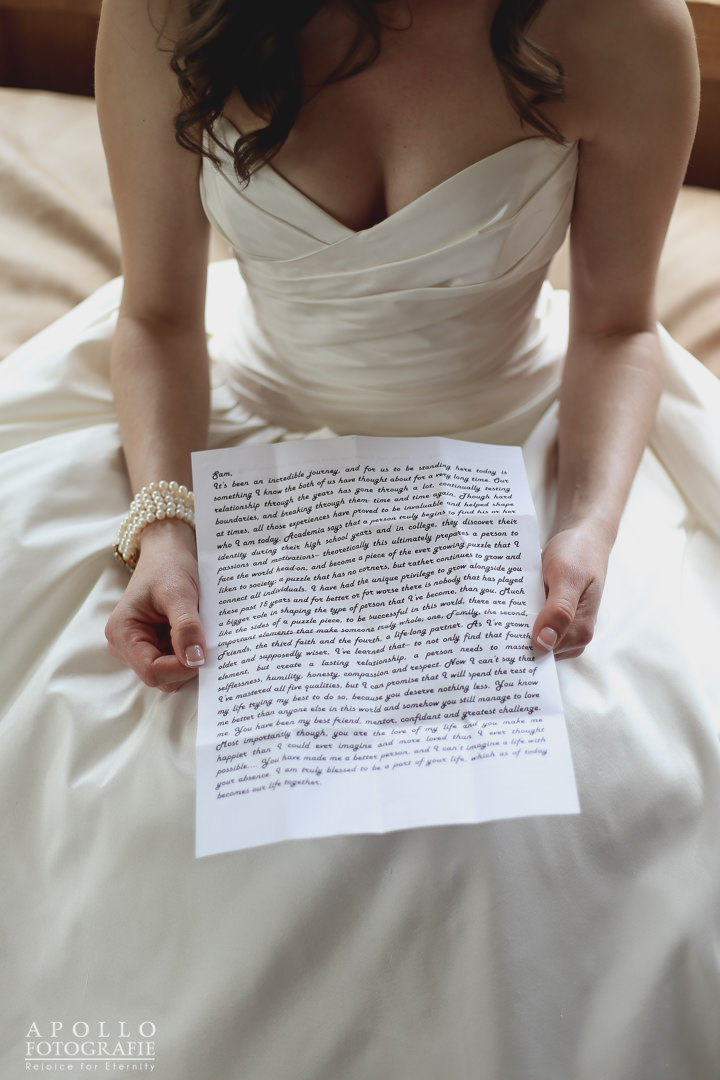 Sam,
It's been an incredible journey, and for us to be standing here today is
something I know the both of us have thought about for a very long time. Our
relationship through the years has gone through a lot, continually testing
boundaries, and breaking through them- time and time again. Though hard
at times, all those experiences have proved to be invaluable and helped shape
who I am today. Academia says that a person truly begins to find his or her
identity during their high school years and in college, they discover their
passions and motivations- theoretically this ultimately prepares a person to
face the world head-on, and become a piece of the ever growing puzzle that I
liken to society; a puzzle that has no corners, but rather continues to grow and
connect all individuals. I have had the unique privilege to grow alongside you
these past 15 years and for better or for worse there is nobody that has played
a bigger role in shaping the type of person that I've become, than you. Much
like the sides of a puzzle piece, to be successful in this world, there are four
important elements that make someone truly whole; one, Family, the second,
Friends, the third faith and the fourth, a life-long partner. As I've grown
older and supposedly wiser, I've learned that- to not only find that fourth
element, but create a lasting relationship, a person needs to master
selflessness, humility, honesty, compassion and respect. Now I can't say that
I've mastered all five qualities, but I can promise that I will spend the rest of
my life trying my best to do so, because you deserve nothing less. You know
me better than anyone else in this world and somehow you still manage to love
me. You have been my best friend, mentor, confidant and greatest challenge.
Most importantly though, you are the love of my life and you make me
happier than I could ever imagine and more loved than I ever thought
possible.... You have made me a better person, and I can't imagine a life with
your absence. I am truly blessed to be a part of your life, which as of today
becomes our life together.
APOLLO
FOTOGRAFIE
Rejoice for Eternity